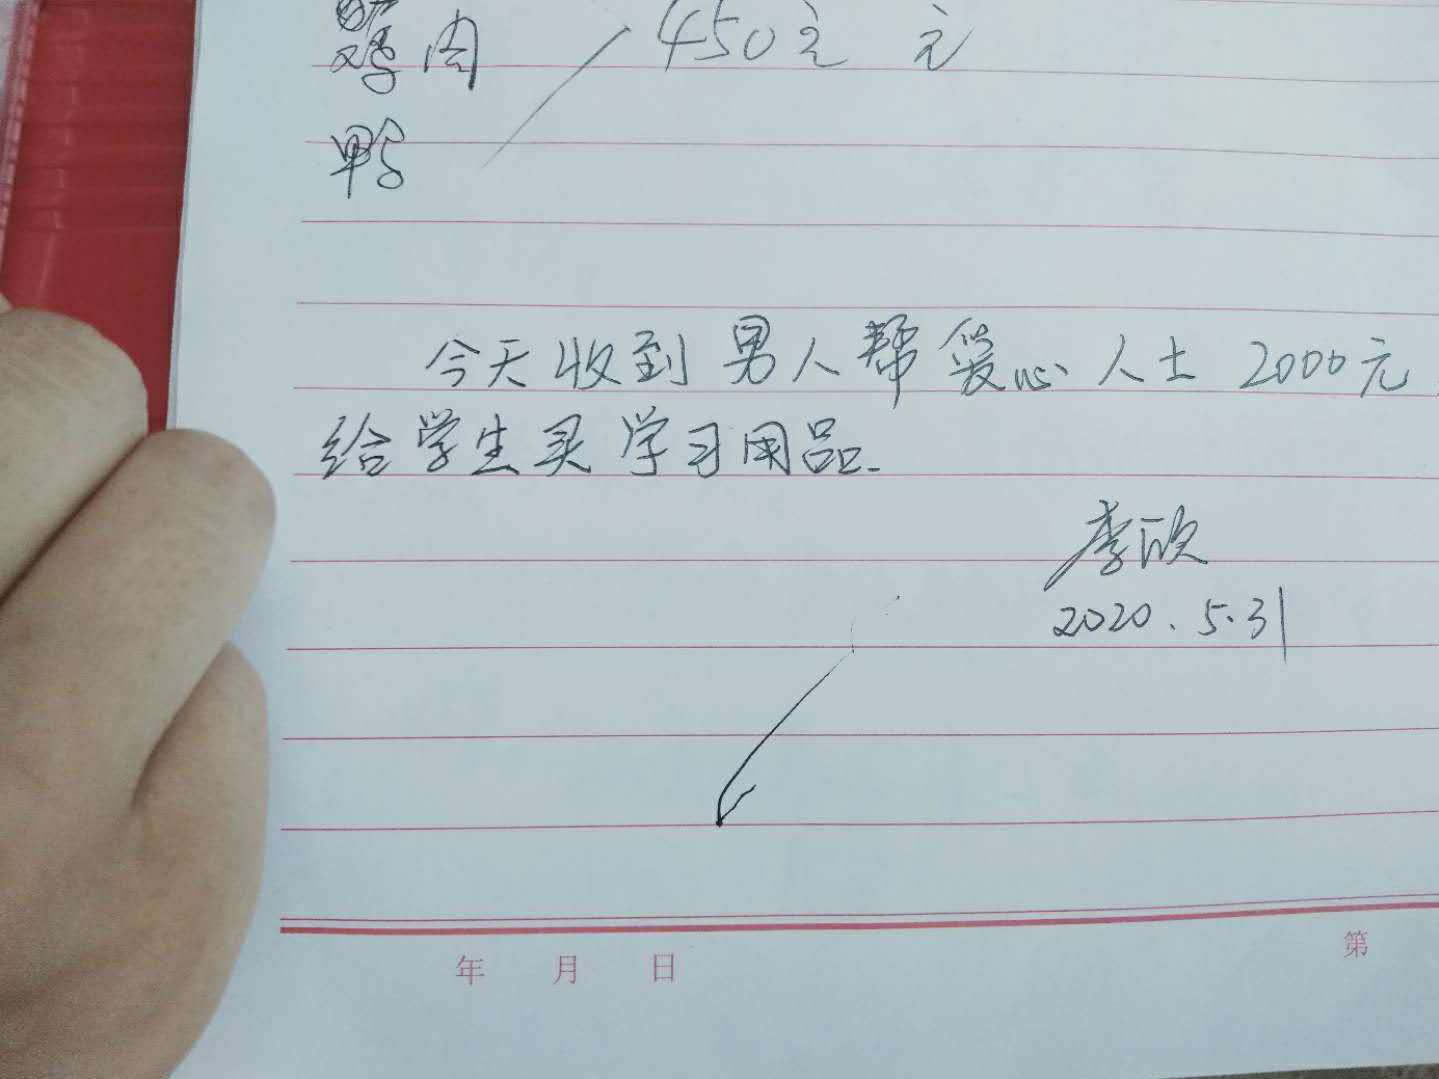 鸡肉 450元 元
鸭
今天收到男人帮爱心人士2000元
给学生买学习用品.
李欣
2020.5.31
年 月 日 第